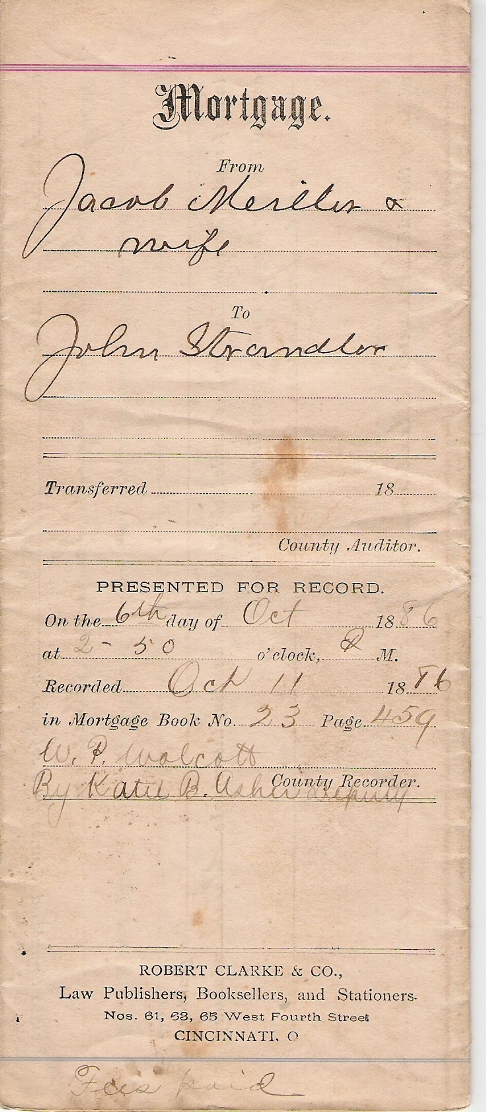 Mortgage.
From
Jacob &
wife
To
John Strandler
Transferred 18
County Auditor.
PRESENTED FOR RECORD.
On the 6th day of Oct 1886
at 2-50 o'clock, P M.
Recorded Oct 11 1886
in Mortgage Book No. 23 Page 459
W. P. Wolcott
County Recorder.
By Katie B. Usher deputy
ROBERT CLARKE & CO.,
Law Publishers, Booksellers, and Stationers.
Nos. 61, 63, 65 West Fourth Street
CINCINNATI, O
Fees paid